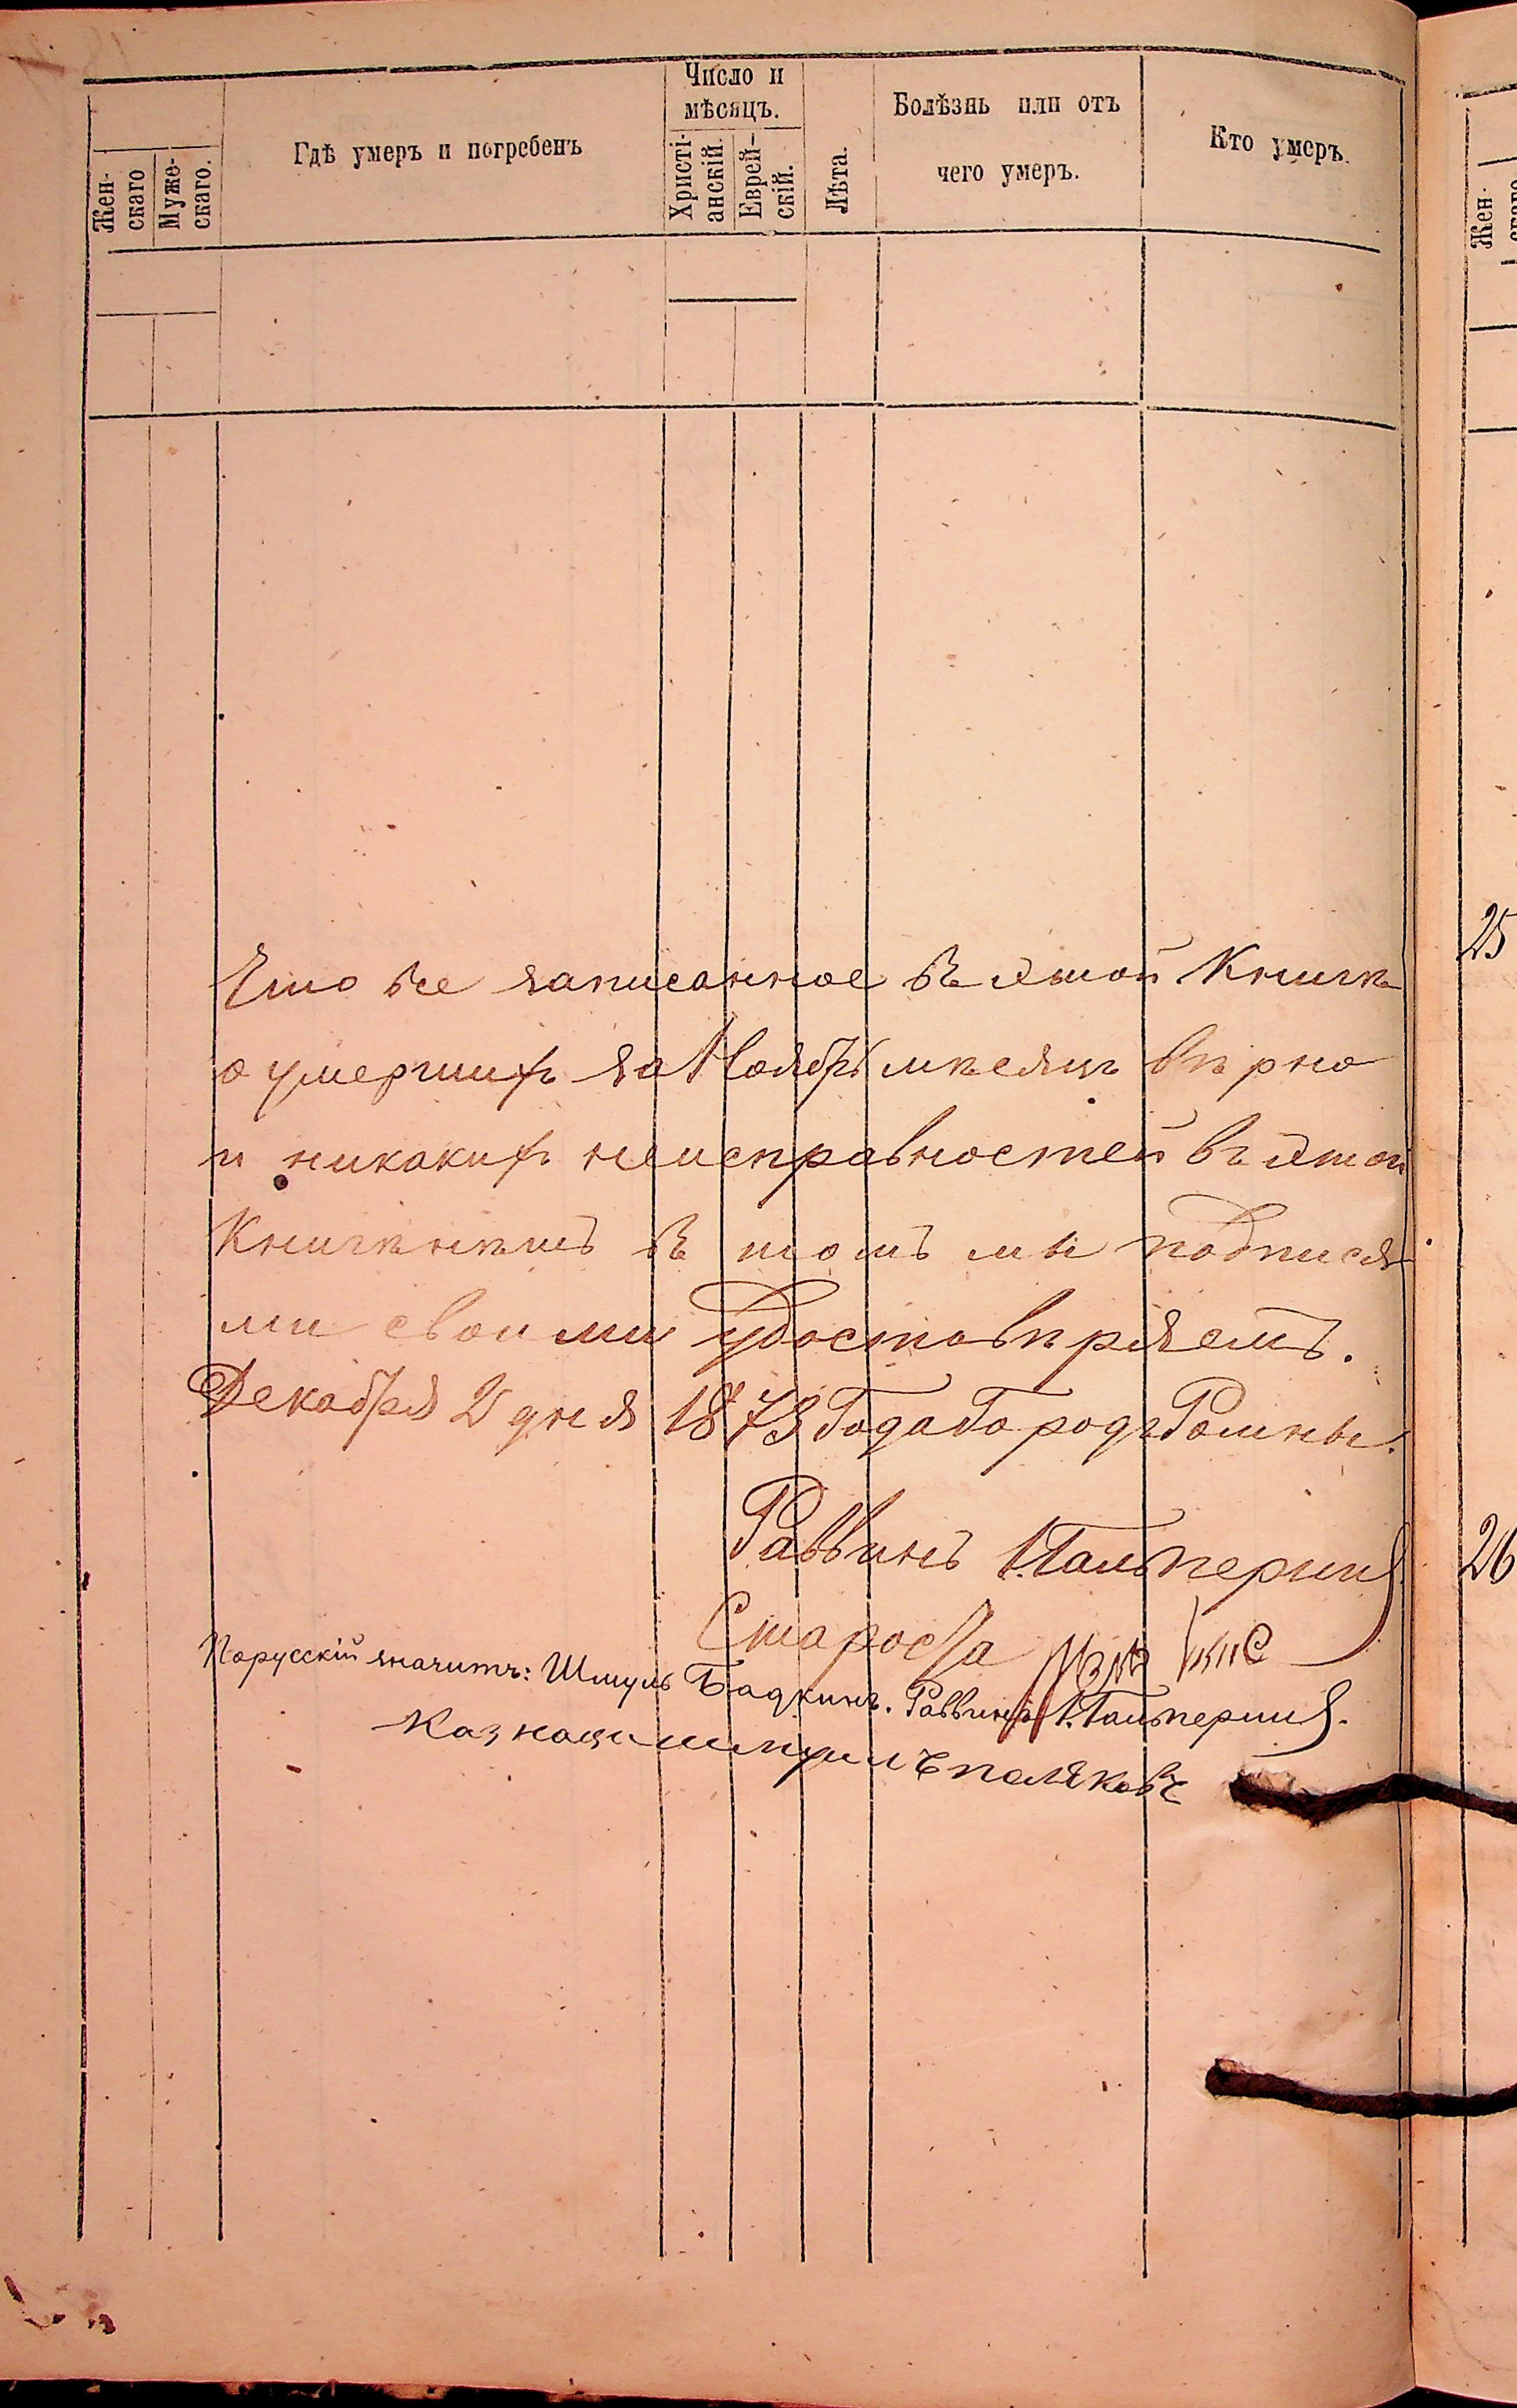 Жен-
скаго
Муже-
скаго.
Гдѣ умеръ и погребенъ
Число и
мѣсяцъ.
Христі-
анскій.
Еврей-
скій.
Лѣта.
Болѣзнь или отъ
чего умеръ.
Кто умеръ.
Что все записанное въ этой Книгѣ
о умершихъ за Ноябрь мѣсяцъ вѣрно
и никакихъ неисправностей въ этой
Книгѣ нѣтъ въ томъ мы подпися
ми своими удостовѣряемъ.
Декабря 2 дня 1873 Года Городъ Ромны.
Раввинъ І. Гальперинъ
Староста
Порусскій значитъ: Шмуль Бадкинъ. Раввинъ І. Гальперинъ.
Казначи шмуилъ поляковъ
Жен-
скаго
25
26